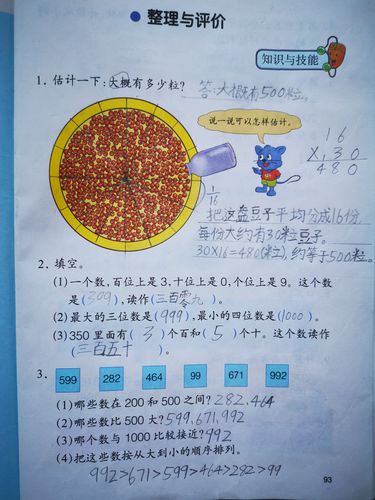 整理与评价
知识与技能
1. 估计一下:大概有多少粒? 答:大概有500粒。
说一说可以怎样估计。
16
×30
480
1/16
把这盘豆子平均分成16份,
每份大约有30粒豆子。
30×16=480(粒),约等于500粒。
2. 填空。
(1)一个数,百位上是3,十位上是0,个位上是9。这个数
是(309),读作(三百零九)。
(2)最大的三位数是(999),最小的四位数是(1000)。
(3)350里面有(3)个百和(5)个十。这个数读作
(三百五十)。
3. 599 282 464 99 671 992
(1)哪些数在200和500之间? 282.464
(2)哪些数比500大? 599,671,992
(3)哪个数与1000比较接近? 992
(4)把这些数按从大到小的顺序排列。
992>671>599>464>282>99
93